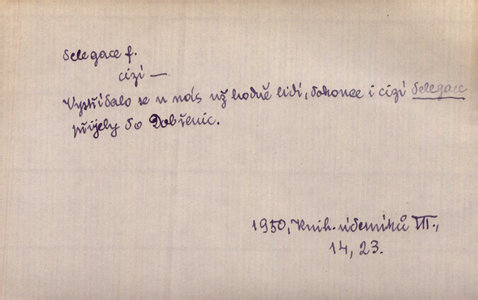 delegace f.
cizí —
Vystřídalo se u nás už hodně lidí, dokonce i cizí delegace
přijely do Dobřenic.
1950, Knih. úderníků III.,
14, 23.